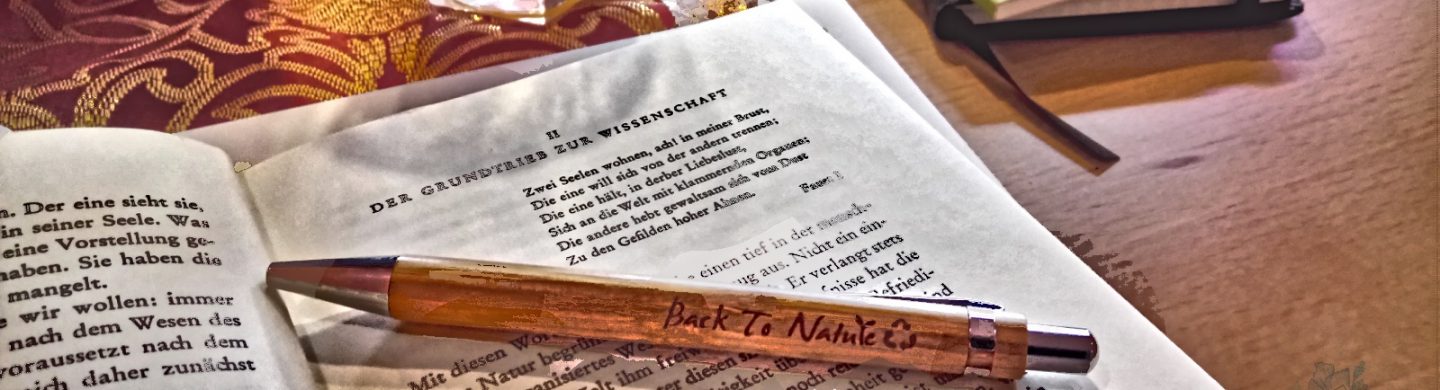 n. Der eine sieht sie,
in seiner Seele. Was
eine Vorstellung ge-
haben. Sie haben die
mangelt.
wir wollen: immer
nach dem Wesen des
voraussetzt nach dem
ich daher zunächst
II
DER GRUNDTRIEB ZUR WISSENSCHAFT
Zwei Seelen wohnen, ach! in meiner Brust,
Die eine will sich von der andern trennen;
Die eine hält, in derber Liebeslust,
Sich an die Welt mit klammernden Organen;
Die andere hebt gewaltsam sich vom Dust
Zu den Gefilden hoher Ahnen.
Faust I
einen tief in der mensch-
aus. Nicht ein ein-
Er verlangt stets
die
Back To Nature
Mit diesen
Natur
ihm
diesen